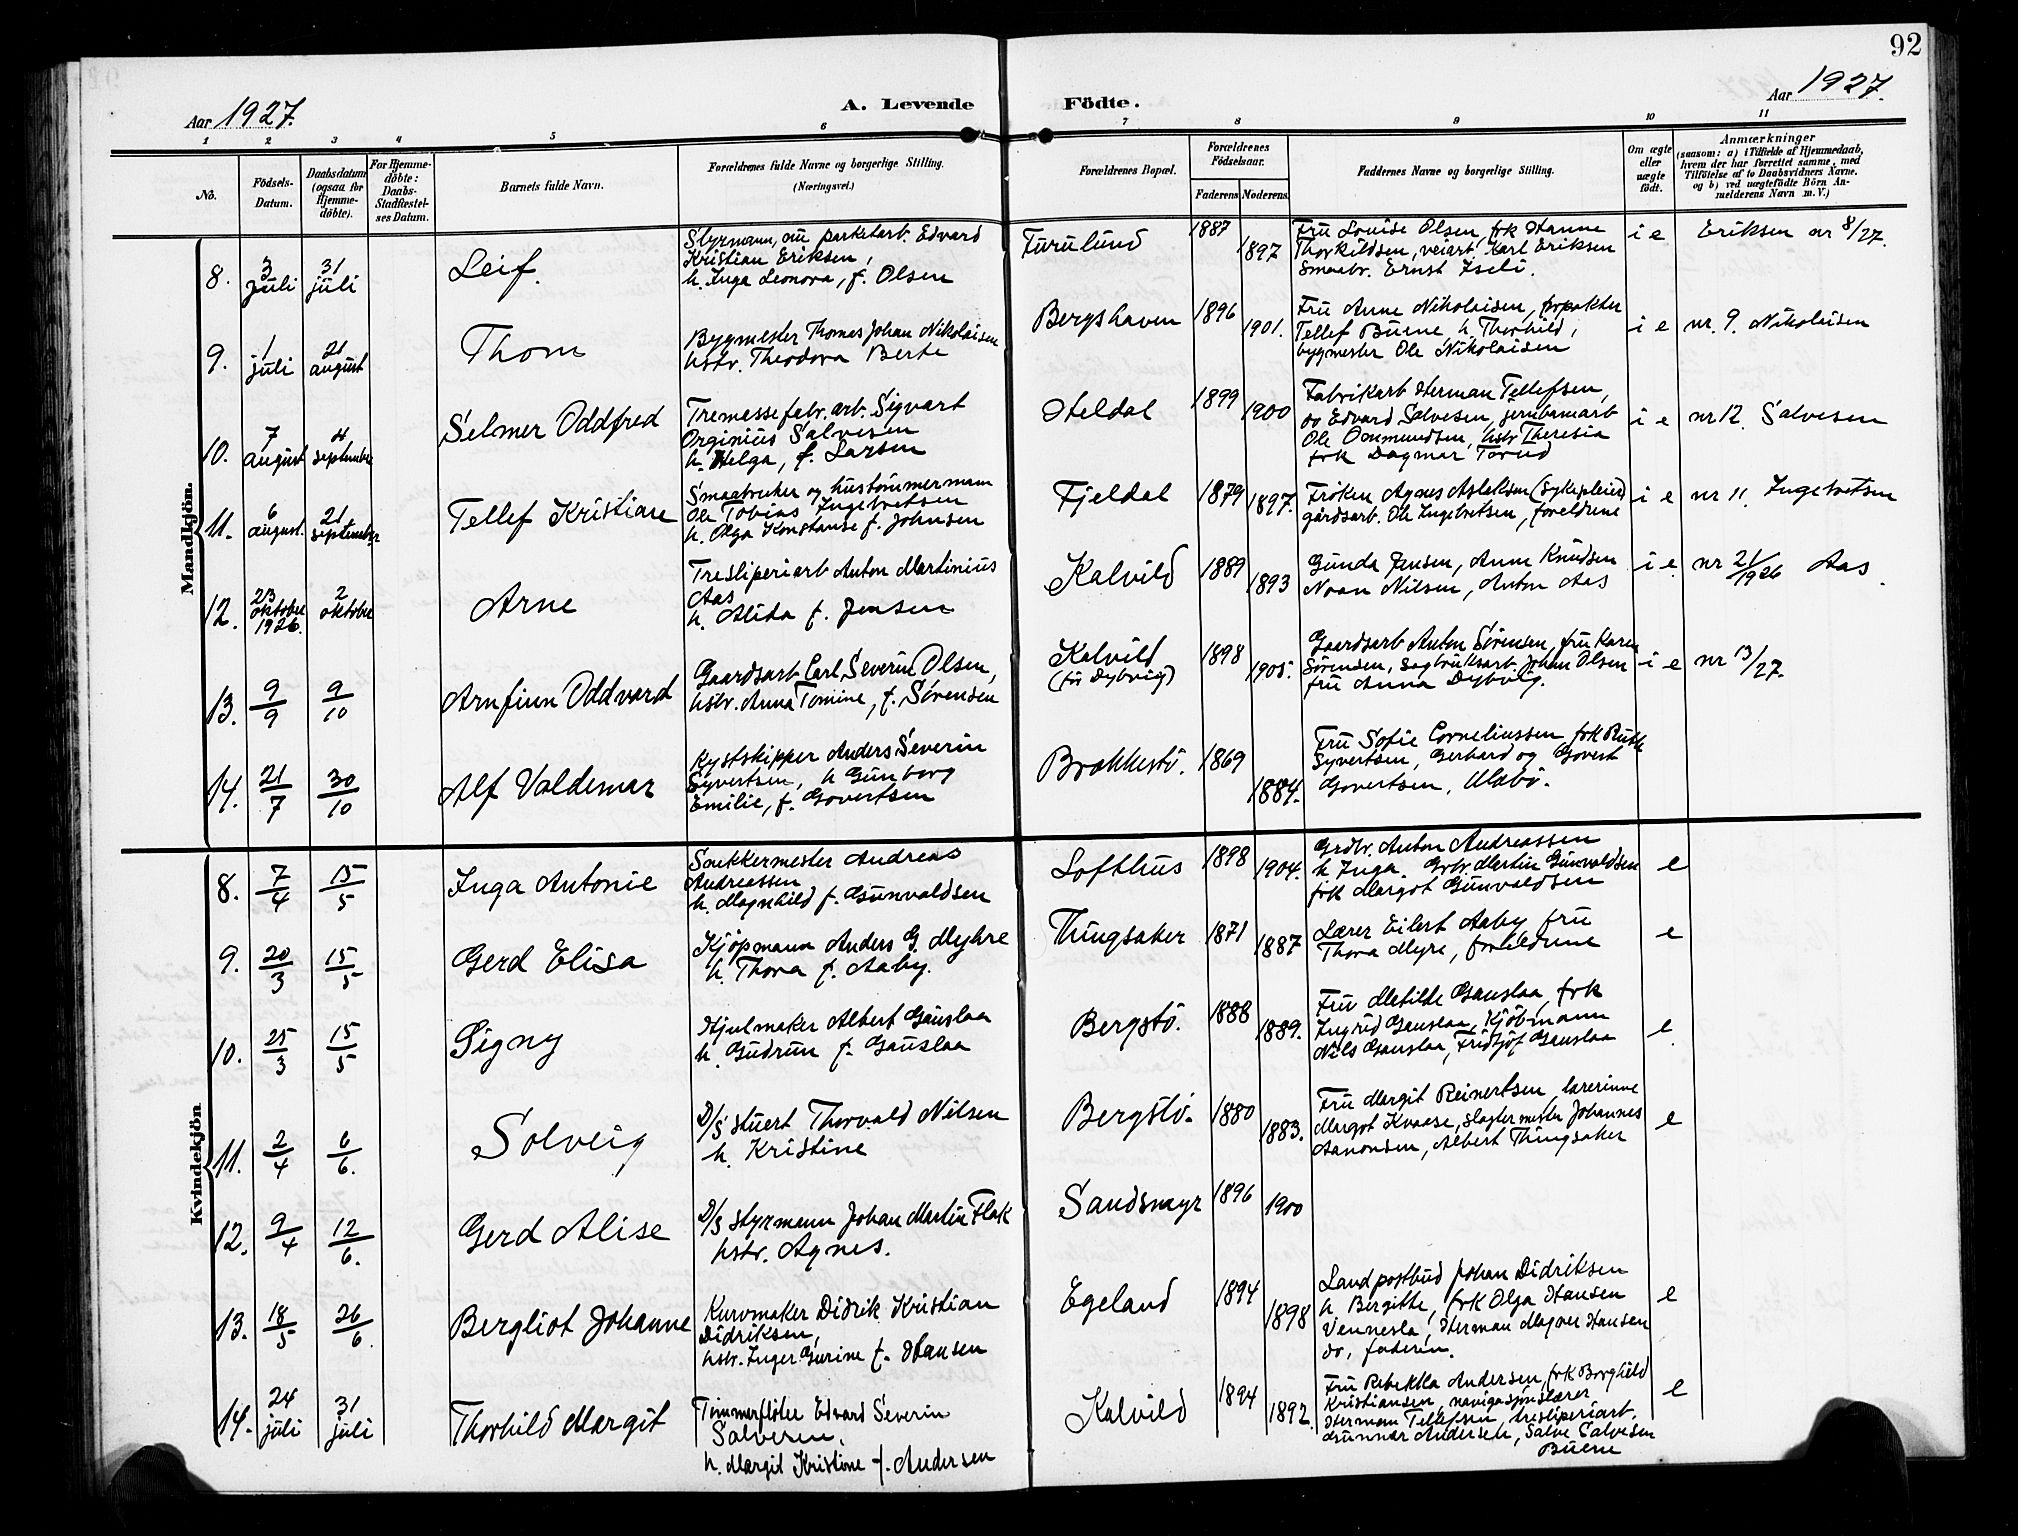 92
Aar 1927.
A. Levende Födte.
Aar 1927.
1 2 3 4 5 6 7 8 9 10 11
No.
Födsels-Datum.
Daabsdatum (ogsaa for Hjemme-döbte).
For Hjemme-döbte: Daabs-Stadfæstel-ses Datum.
Barnets fulde Navn.
Forældrenes fulde Navne og borgerlige Stilling.
(Næringsvei.)
Forældrenes Bopæl.
Forældrenes Födselsaar.
Faderens Moderens
Faddernes Navne og borgerlige Stilling.
Om ægte eller uægte födt.
Anmærkninger
(saasom: a) i Tilfælde af Hjemmedaab,
hvem der har forrettet samme, med
Tilföielse af to Daabsvidners Navne.
og b) ved uægtefödte Börn An-
melderens Navn m. V.)
Mandkjön.
8. 3 juli 31 juli Leif.
Styrmann, nu parketarb. Edvard
Kristian Eriksen,
h. Inga Leonora, f. Olsen
Furulund 1887 1897
Fru Louise Olsen, frk Hanne
Thorkildsen, veiarb. Karl Eriksen
Smaabr. Ernst Iseli.
i e Eriksen nr 8/27.
9. 1 juli 21 august Thom
Bygmester Thomas Johan Nikolaisen
hstr. Theodora Berte
Bergshaven 1896 1901.
Fru Anne Nikolaisen, forpakter
Tellef Buene h Thorhild,
bygmester Ole Nikolaisen
i e nr. 9. Nikolaisen
10. 7 august 4 september Selmer Oddfred
Tremassefabr. arb. Sigvart
Orginius Salvesen
h. Helga, f. Larsen
Heldal 1899 1900
Fabrikarb Herman Tellefsen,
do Edvard Salvesen, jernbanarb
Ole Ommundsen, hstr Theresia
frk Dagmar Torud
i e nr 12. Salvesen
11. 6 august. 21 september Tellef Kristian
Smaabruker og hustømmermann
Ole Tobias Ingebretsen
h. Olga Konstanse f. Johnsen
Fjeldal 1879 1897.
Frøken Agnes Aslaksen (Sykepleier)
gårdsarb. Ole Ingebretsen, foreldrene
i e nr 11. Ingebretsen
12. 23 oktober 1926. 2 oktober Arne
Tresliperiarb Anton Martinius
Aas
h. Alida f. Jensen
Kalvild 1889 1893
Gunda Jensen, Anne Knudsen
Noan Nilsen, Anton Aas
i e nr 21/1926 Aas.
13. 9/9 9/10 Arnfinn Oddvard
Gaardsarb Carl Severin Olsen,
hstr. Anna Tomine, f. Sörensen
Kalvild
(för Dybvig) 1898 1905.
Gaardsarb Anton Sörensen, fru Karen
Sörensen, Sagbruksarb. Johan Olsen
fru Anna Dybvig.
i e nr 13/27.
14. 21/7 30/10 Alf Valdemar
Kystskipper Anders Severin
Syvertsen, h Gunborg
Emilie, f. Govertsen
Brækkestö. 1869 1884.
Fru Sofie Corneliussen frk Ruth
Syvertsen, Gerhard og Govert
Govertsen, Ulabö.
Kvindekjön
8. 7/4 15/5 Inga Antonie
Snekkermester Andreas
Andreassen
h. Magnhild f. Gunvaldsen
Lofthus 1898 1904.
Grdbr. Anton Andreassen
h Inga. Grbr. Martin Gunvaldsen
frk Margot Gunvaldsen
e
9. 20/3 15/5 Gerd Elisa
Kjøpmann Anders G. Myhre
h. Thora f. Aaby.
Thingsaker 1871 1887
Lærer Eilert Aaby fru
Thora Myre, foreldrene
e
10. 25/3 15/5 Signy
Hjulmaker Albert Gauslaa
h. Gudrun f. Gauslaa
Bergstö. 1888 1889.
Fru Matilde Gauslaa, frk
Ingrid Gauslaa, Kjöbmann
Nils Gauslaa, Fridtjof Gauslaa
e
11. 2/4 6/6. Solveig
D/S stuert Thorvald Nilsen
h. Kristine
Bergstö. 1880 1883.
Fru Margit Reinertsen, lærerinne
Margot Kvaase, slaktermester Johannes
Aanonsen, Albert Thingsaker
e
12. 9/4 12/6. Gerd Alise
D/S styrmann Johan Martin Flak
hstr. Agnes.
Sandsmyr 1896 1900
13. 18/5 26/6 Bergliot Johanne
Kurvmaker Didrik Kristian
Didriksen,
hstr. Inger Gurine f. Hansen
Egeland 1894 1898
Landpostbud Johan Didriksen
h Bergitte, frk Olga Hansen
Vennesla, Herman Magner Hansen
do, faderen.
e
14. 24 juli 31 juli Thorhild Margit
Tömmerfløter Edvard Severin
Salvesen,
h. Margit Kristine f. Andersen
Kalvild 1894 1892.
Fru Rebekka Andersen, frk Borghild
Kristiansen, navigasjonslærer
Herman Tellefsen, tresliperiarb.
Gunnar Andersen, Salve Salvesen
Buene
e